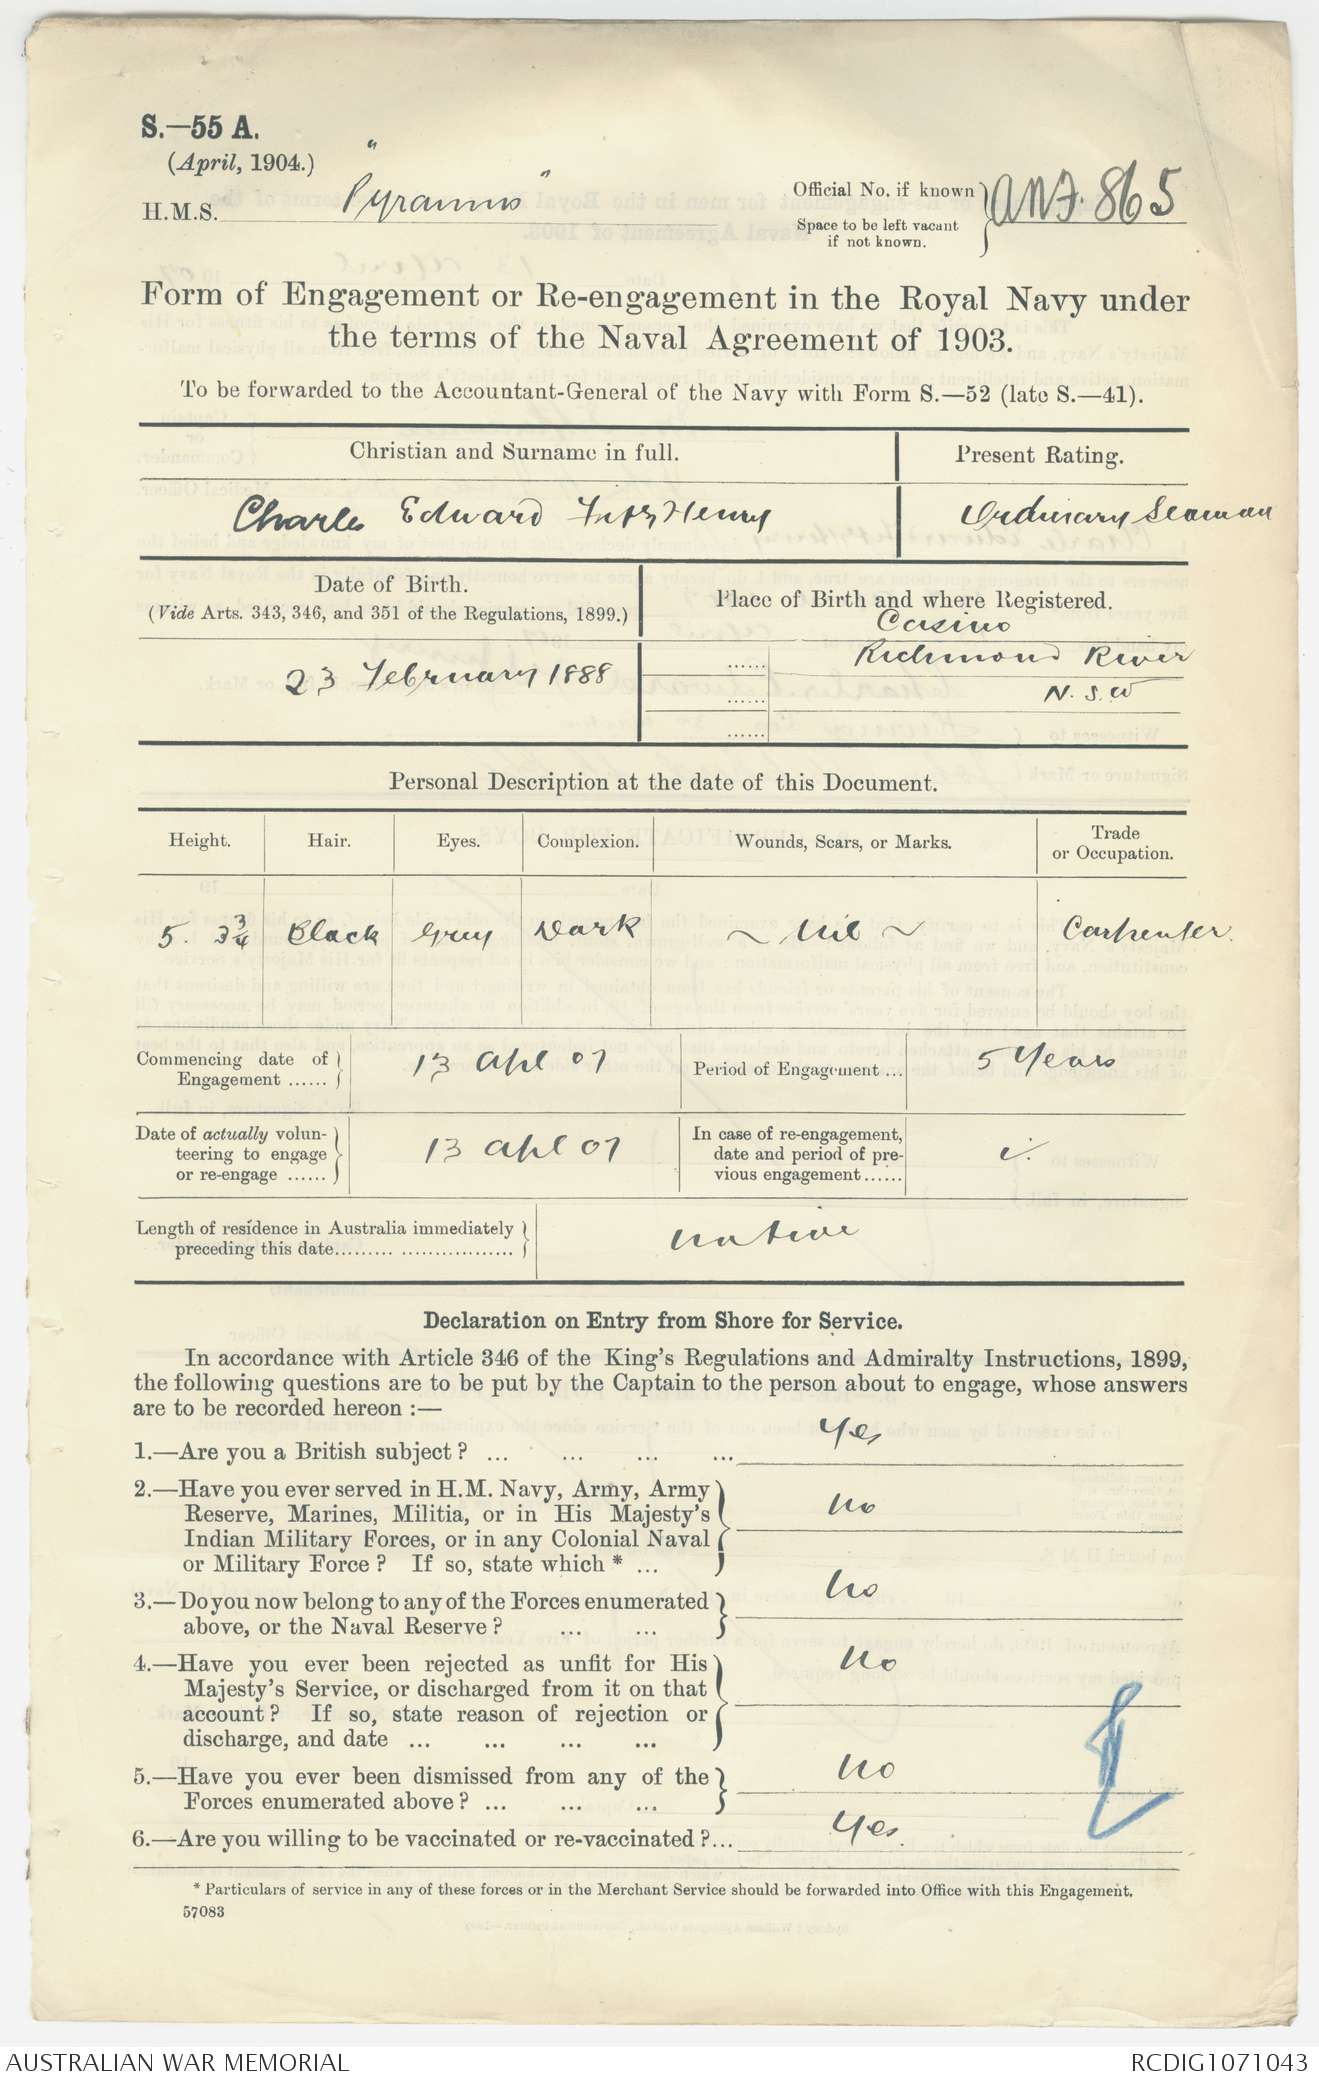 S.—55 A.
(April, 1904.)
H.M.S. "Pyramus"
Official No. if known
Space to be left vacant
if not known.
ANF. 865
Form of Engagement or Re-engagement in the Royal Navy under
the terms of the Naval Agreement of 1903.
To be forwarded to the Accountant-General of the Navy with Form S.—52 (late S.—41).
Christian and Surname in full.
Present Rating.
Charles Edward FitzHenry
Ordinary Seaman
Date of Birth.
(Vide Arts. 343, 346, and 351 of the Regulations, 1899.)
Place of Birth and where Registered.
23 February 1888
Casino
Richmond River
N.S.W
Personal Description at the date of this Document.
Height. Hair. Eyes. Complexion. Wounds, Scars, or Marks. Trade
or Occupation.
5. 3 3/4 Black Grey Dark ~ Nil ~ Carpenter.
Commencing date of
Engagement ......
13 Apl 07
Period of Engagement ...
5 Years
Date of actually volun-
teering to engage
or re-engage ......
13 Apl 07
In case of re-engagement,
date and period of pre-
vious engagement ......
Length of residence in Australia immediately
preceding this date......... .................
native
Declaration on Entry from Shore for Service.
In accordance with Article 346 of the King's Regulations and Admiralty Instructions, 1899,
the following questions are to be put by the Captain to the person about to engage, whose answers
are to be recorded hereon :—
1.—Are you a British subject? ... ... ... ... Yes
2.—Have you ever served in H.M. Navy, Army, Army
Reserve, Marines, Militia, or in His Majesty's
Indian Military Forces, or in any Colonial Naval
or Military Force? If so, state which * ...
No
3.—Do you now belong to any of the Forces enumerated
above, or the Naval Reserve? ... ...
No
4.—Have you ever been rejected as unfit for His
Majesty's Service, or discharged from it on that
account? If so, state reason of rejection or
discharge, and date ... ... ... ...
No
5.—Have you ever been dismissed from any of the
Forces enumerated above? ... ... ...
No
6.—Are you willing to be vaccinated or re-vaccinated?... Yes.
* Particulars of service in any of these forces or in the Merchant Service should be forwarded into Office with this Engagement.
57083
AUSTRALIAN WAR MEMORIAL
RCDIG1071043